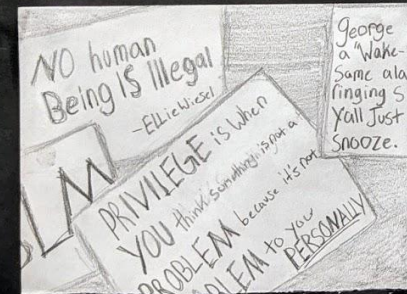 NO human
Being IS Illegal
-Ellie Wiesel
George
a "Wake-
Same ala
ringing S
Y'all Just
Snooze.
LM
PRIVILEGE is when
YOU think something is not a
PROBLEM because it's not
PROBLEM to you
PERSONALLY